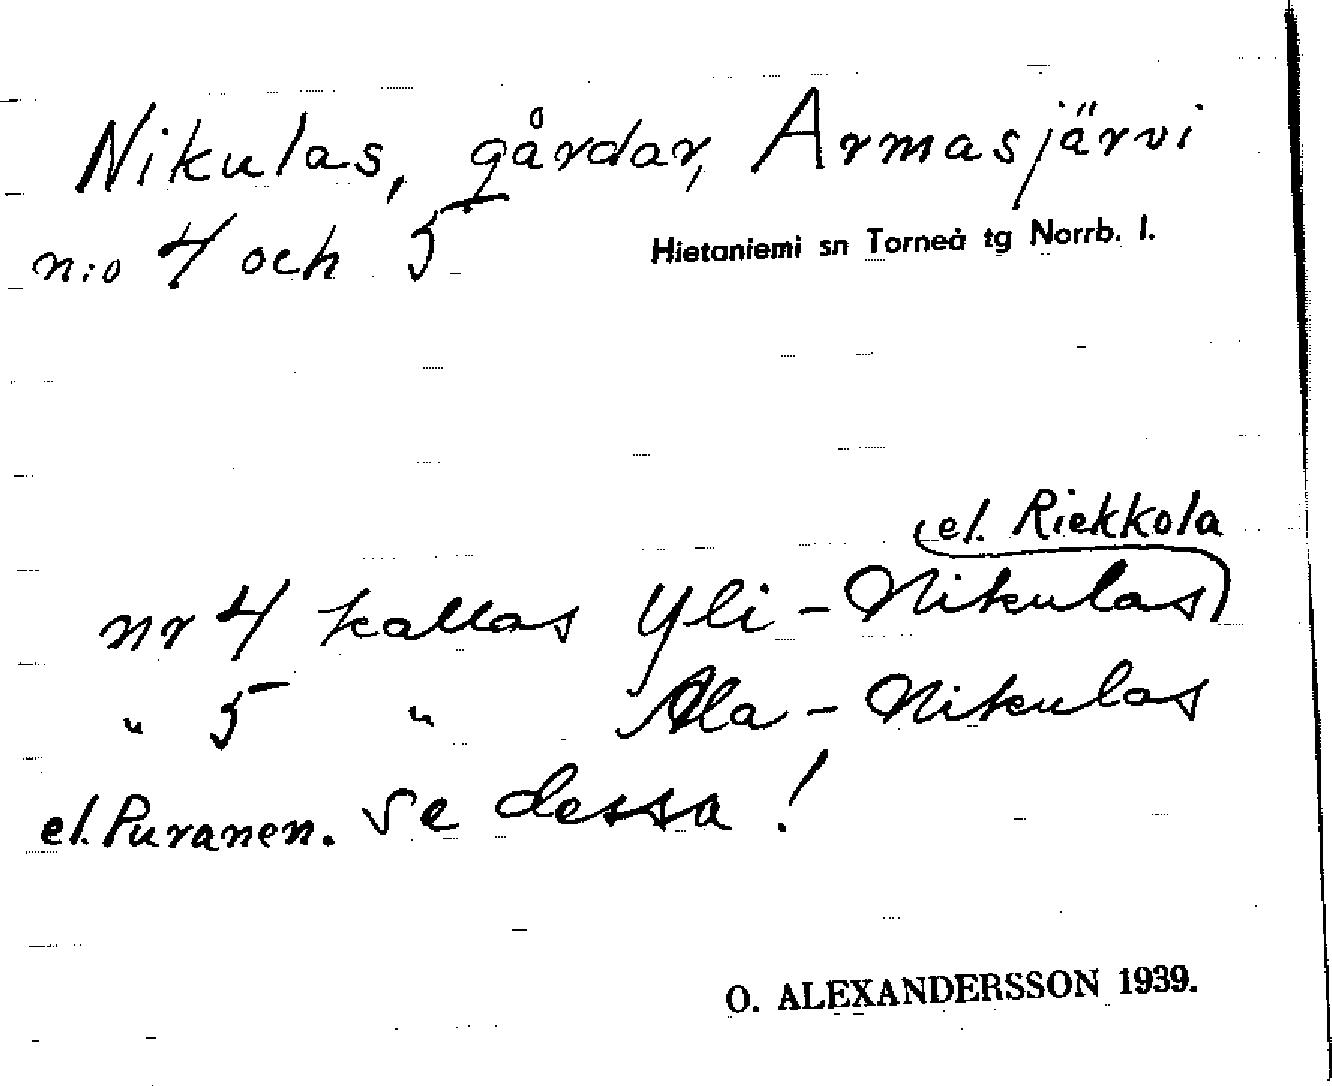 Nikulas, gårdar, Armasjärvi
n:o 4 och 5
Hietaniemi sn Torneå tg Norrb. l.
el. Riekkola
nr 4 kallas Yli-Nikulas
" 5 " Ala-Nikulas
el. Puranen. Se dessa!
O. ALEXANDERSSON 1939.